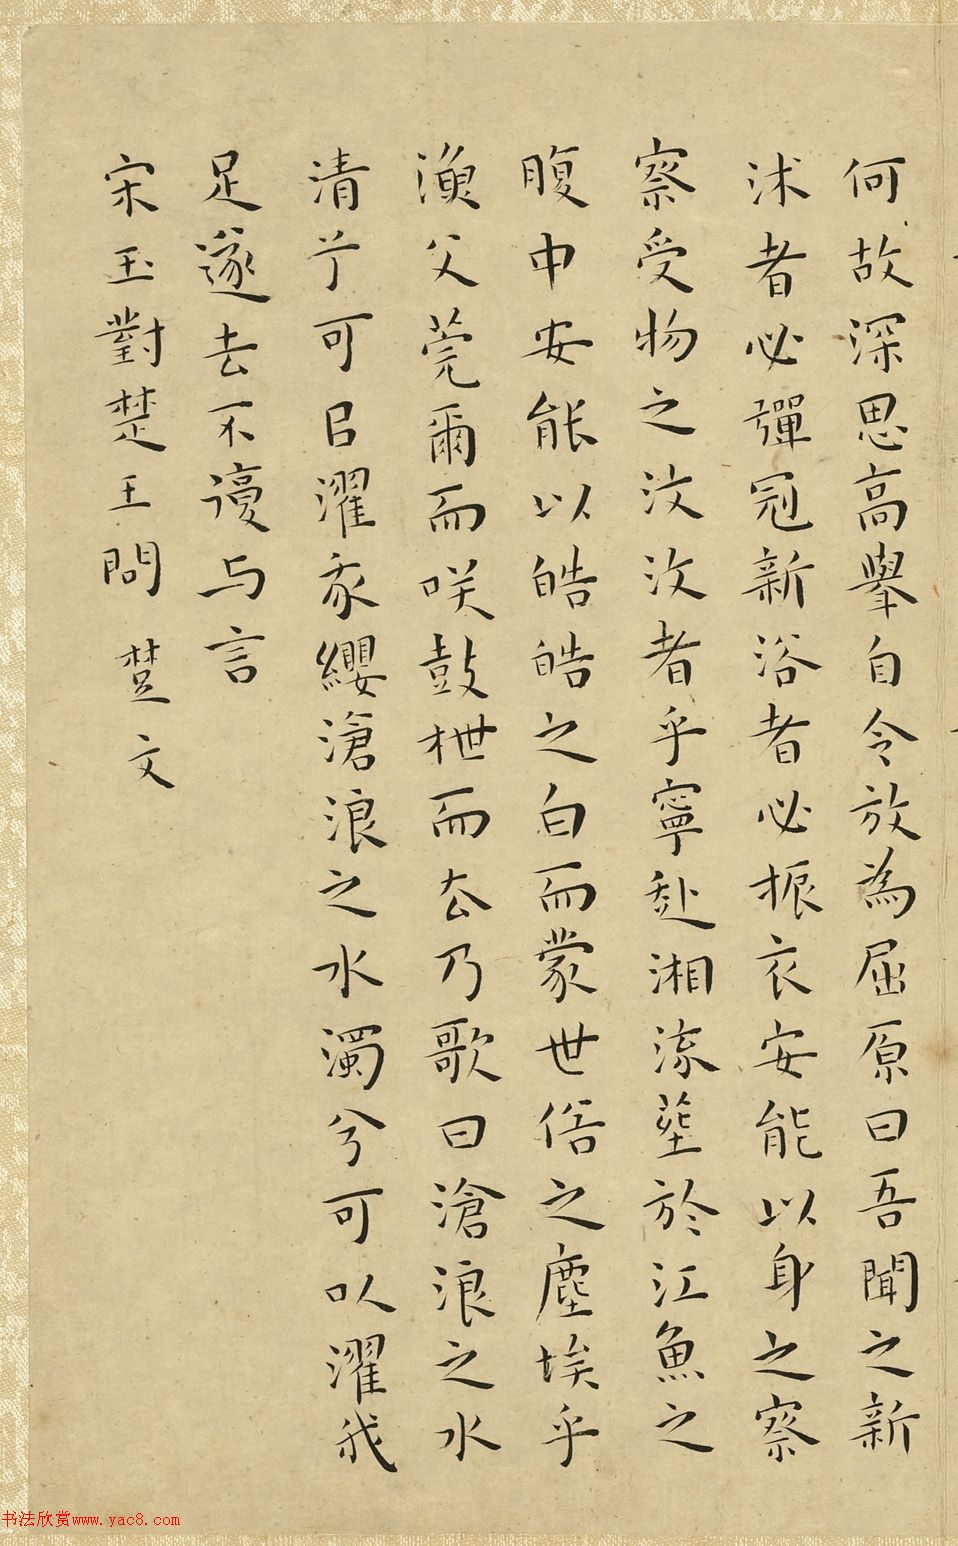 何故深思高舉自令放為屈原曰吾聞之新
沐者必彈冠新浴者必振衣安能以身之察
察受物之汶汶者乎寧赴湘流塟於江魚之
腹中安能以皓皓之白而蒙世俗之塵埃乎
漁父莞爾而咲鼓枻而去乃歌曰滄浪之水
清兮可㠯濯我纓滄浪之水濁兮可以濯我
足遂去不復与言
宋玉對楚王問 楚文
书法欣赏www.yac8.com